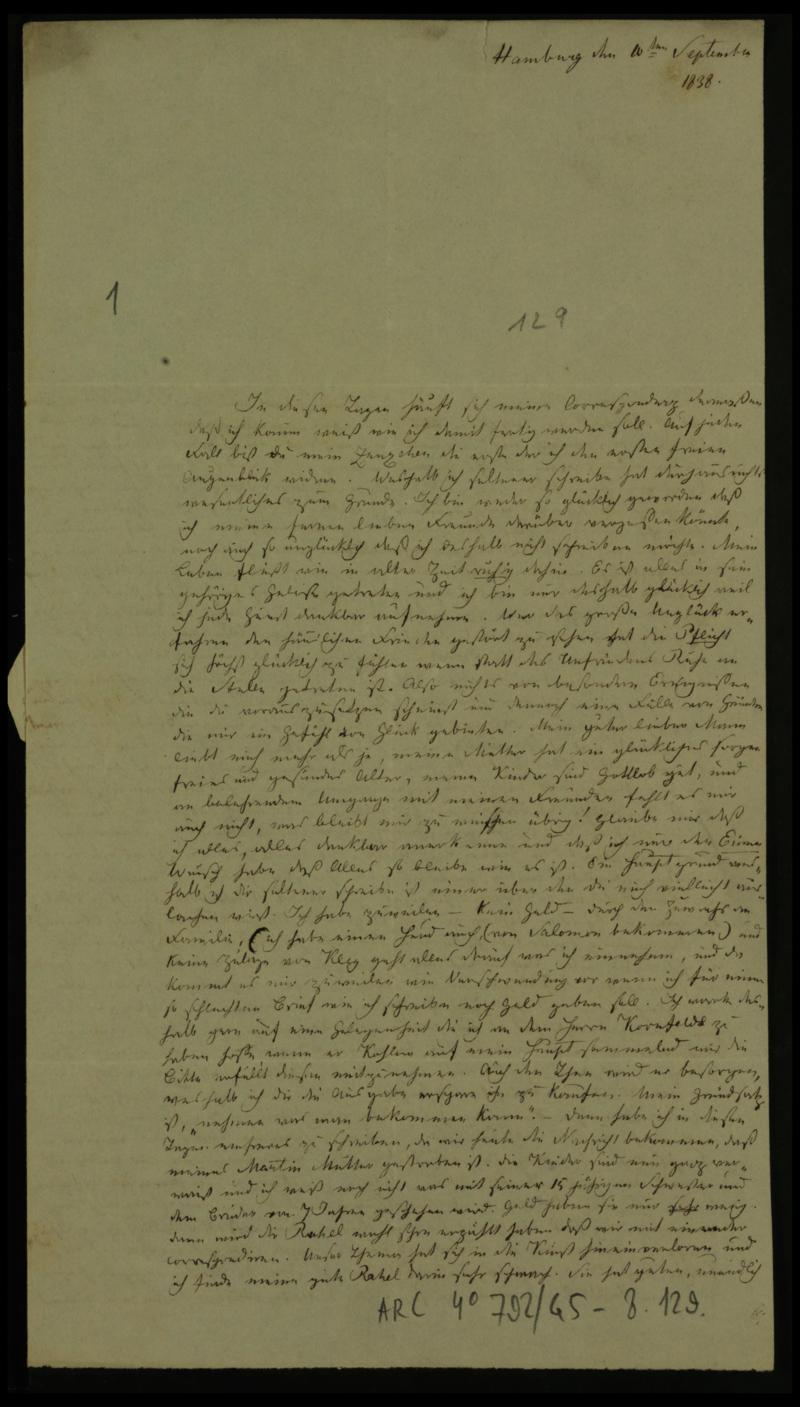 Hamburg den 10ten September
1838.
1
129
In diesen Tagen häuft sich meine Correspondenz dermaßen
daß ich kaum weiß wie ich damit fertig werden soll. Auf jeden
Fall bist du mein die erste der ich den ersten freien
Augenblick widme. Weshalb ich seltener schreibe hat durchaus nichts
wesentliches zum Grunde. Ich bin weder so glücklich geworden daß
ich meine fernen lieben Freunde darüber vergessen könnte,
noch auch so unglücklich daß ich deshalb nicht schreiben möchte. Mein
Leben fließt wie in alter Zeit ruhig dahin. Es ist alles in sein
gehöriges Geleise getreten und ich bin nur deshalb glücklich weil
ich jede Gunst dankbar aufnehme. Wer das große Unglück er-
fahren den häuslichen Frieden gestört zu sehen hat die Pflicht
sich höchst glücklich zu fühlen wenn statt des Unfriedens Ruhe an
die Stelle getreten ist. Also nichts von besondern Ereignissen
die du vorauszusetzen scheinst und dennoch eine Fülle von Gründen
die mir ein Gefühl von Glück gebieten. Mein guter lieber Mann
liebt mich mehr als je, meine Mutter hat ein glückliches sorgen
freies und gesundes Alter, meine Kinder sind Gottlob gut, und
an belehrendem Umgange mit meinen Freunden fehlt es mir
auch nicht, was bleibt mir zu wünschen übrig! glaube mir daß
ich alles, alles dankbar anerkenne und daß ich nur den Einen
Wunsch habe daß Alles so bleibe wie es ist. Ein Hauptgrund wes-
halb ich dir seltener schreibe ist einer über den du mich vielleicht aus
lachen wirst. Ich habe zuweilen — kein Geld — durch den Zuwachs der
Familie, (ich habe einen auch (von Salomon bekommen) und
keine Zulage von geht alles darauf was ich einnehme, und da
kommt es mir zuweilen wie Verschwendung vor wenn ich für einen
so schlechten Brief wie ich schreibe noch Geld geben soll. Ich warte des-
halb gern auf eine Gelegenheit die ich an dem Herrn Kornfeld zu
haben hoffe wenn er Kohlen auf mein Haupt sammelnd mir die
Bitte erfüllt diesen mitzunehmen. Auch den Thee wird er besorgen,
weshalb ich dir die Ausgabe erspare ihn zu kaufen. Mein Grundsatz
ist, "nehmen was man bekommen kann". — Dann habe ich in diesen
Tagen mehreres zu schreiben, da wir heute die Nachricht bekommen, daß
meines Martin Mutter gestorben ist. Die Kinder sind nun ganz ver-
waist und ich weiß noch nicht was mit seiner 15 jährigen Schwester und
dem Bruder von 7 Jahren geschehen wird. Geld haben sie nur wenig.
Dann wird dir Rahel wohl schon erzählt haben daß wir mit einander
correspondiren. Unser Thema hat sich in die Kunst hinein verloren und
ich finde meine gute Rahel darin sehr schwach. Sie hat guten, unendlich
ARC 4° 792/G5 - 8. 129.